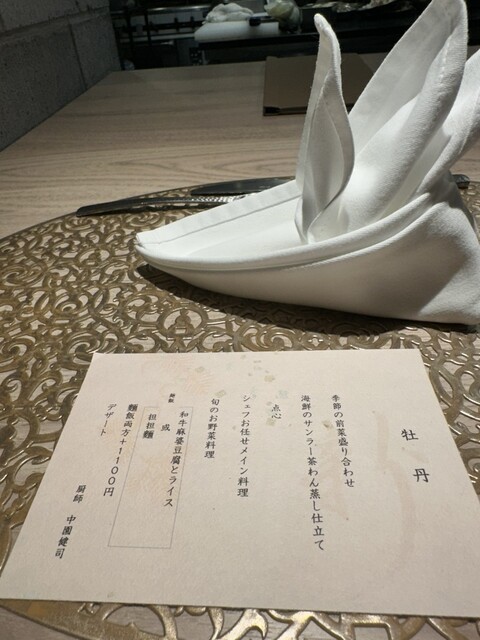 牡丹
季節の前菜盛り合わせ
海鮮のサンラー茶わん蒸し仕立て
点心
シェフお任せメイン料理
旬のお野菜料理
和牛麻婆豆腐とライス
成
担担麺
麵飯両方+1100円
デザート
厨師 中園健司